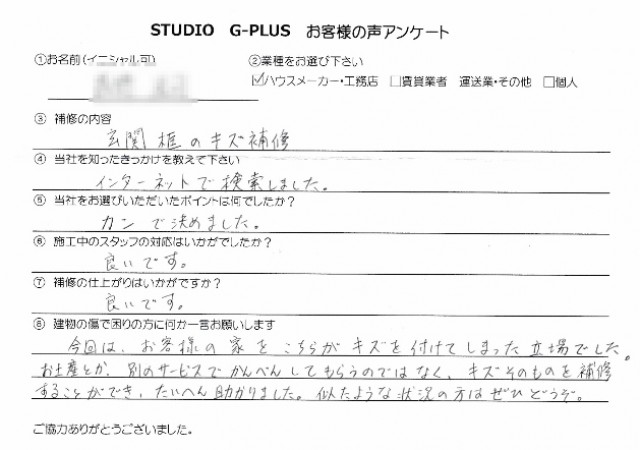 STUDIO G-PLUS お客様の声アンケート
①お名前(イニシャル可) ②業種をお選び下さい
☑ハウスメーカー・工務店 □賃貸業者 運送業・その他 □個人
③ 補修の内容
玄関框のキズ補修
④ 当社を知ったきっかけを教えて下さい
インターネットで検索しました。
⑤ 当社をお選びいただいたポイントは何でしたか?
カンで決めました。
⑥ 施工中のスタッフの対応はいかがでしたか?
良いです。
⑦ 補修の仕上がりはいかがですか?
良いです。
⑧ 建物の傷で困りの方に何か一言お願いします
今回は、お客様の家をこちらがキズを付けてしまった立場でした。
お土産とか、別のサービスでかんべんしてもらうのではなく、キズそのものを補修
することができ、たいへん助かりました。似たような状況の方はぜひどうぞ。
ご協力ありがとうございました。